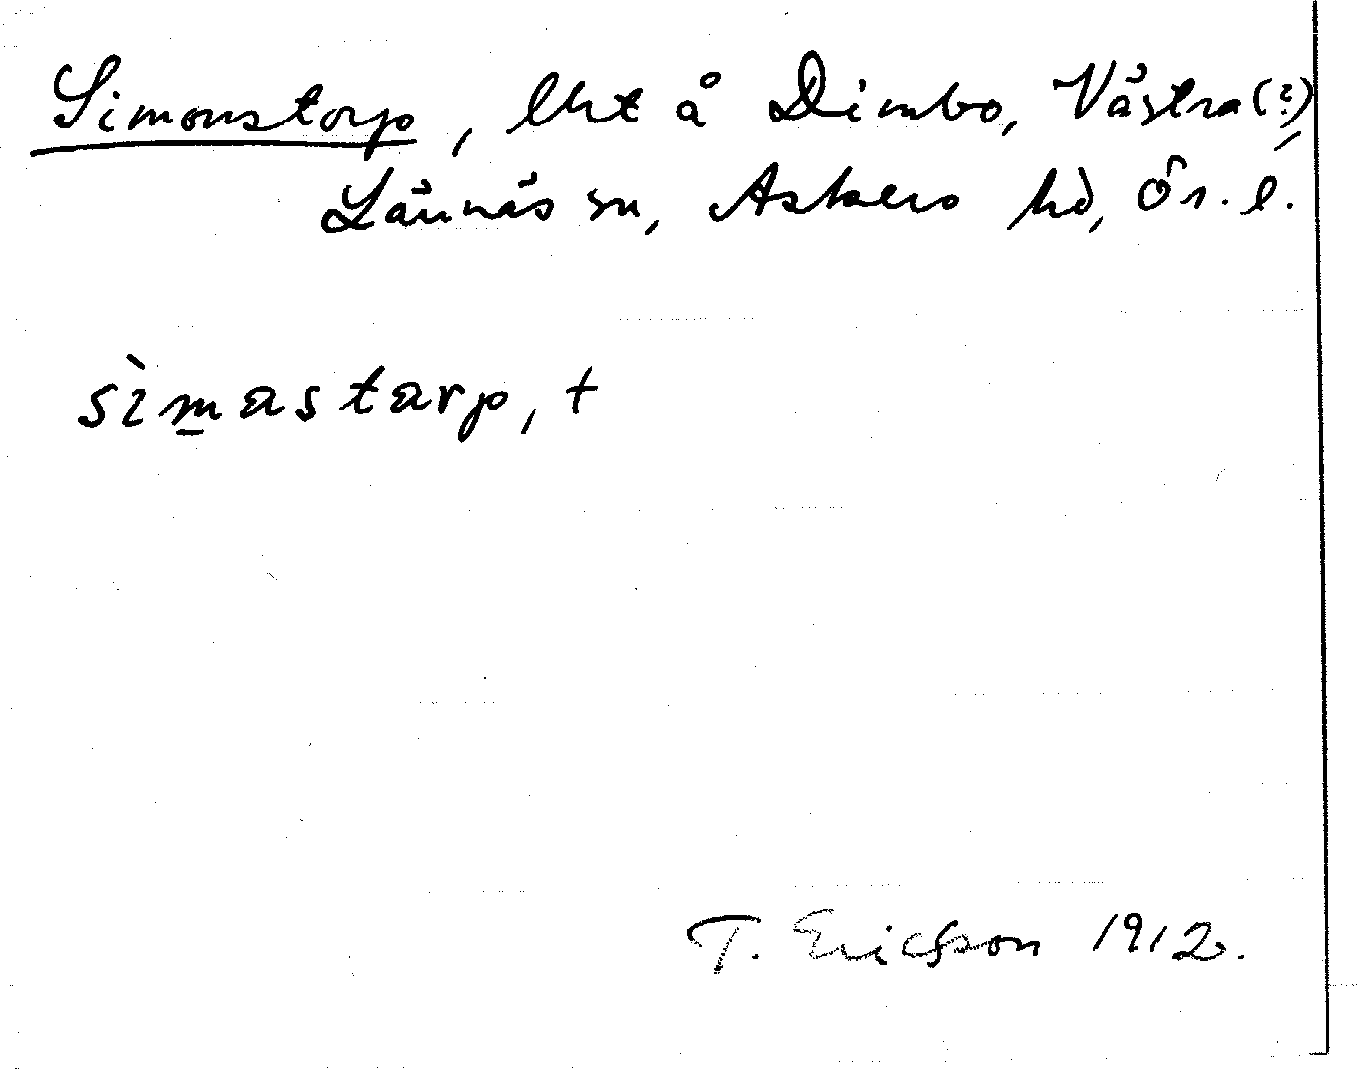 Simonstorp, lht å Dimbo, Västra (?),
Lännäs sn, Askers hd, Ör. l.
sìmastarp, +
T. Ericsson 1912.